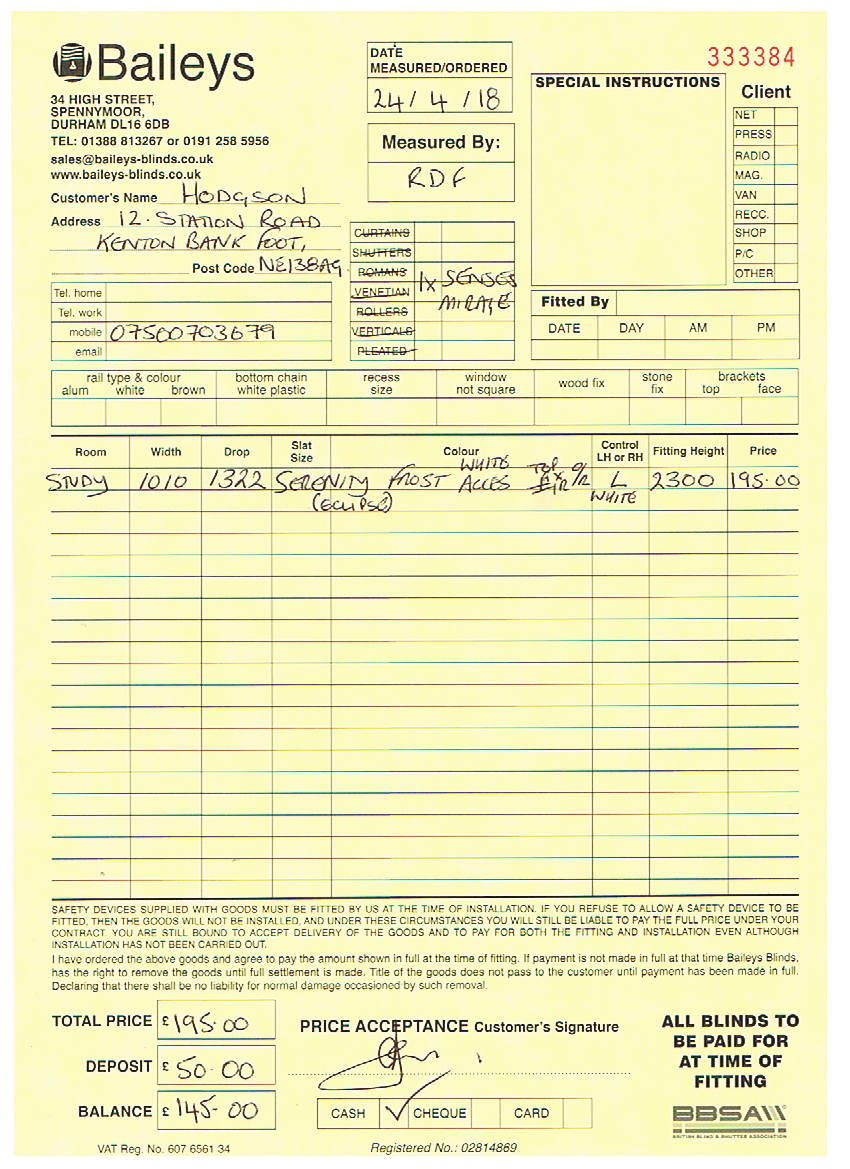 Baileys
34 HIGH STREET,
SPENNYMOOR,
DURHAM DL16 6DB
TEL: 01388 813267 or 0191 258 5956
sales@baileys-blinds.co.uk
www.baileys-blinds.co.uk
DATE
MEASURED/ORDERED
24/4/18
Measured By:
RDF
333384
SPECIAL INSTRUCTIONS
Client
NET
PRESS
RADIO
MAG.
VAN
RECC.
SHOP
P/C
OTHER
Customer's Name HODGSON
Address 12. STATION ROAD
KENTON BANK FOOT,
Post Code NE138AG
Tel. home
Tel. work
mobile 07500703679
email
CURTAINS
SHUTTERS
ROMANS
VENETIAN
ROLLERS
VERTICALS
PLEATED
1x SENSES
MIRAGE
Fitted By
DATE DAY AM PM
rail type & colour
alum white brown
bottom chain
white plastic
recess
size
window
not square
wood fix
stone
fix
brackets
top face
Room Width Drop Slat Size Colour Control LH or RH Fitting Height Price
STUDY 1010 1322 SERENITY FROST WHITE ACCES TOP FIX L 2300 195.00
(ECLIPSE) WHITE
SAFETY DEVICES SUPPLIED WITH GOODS MUST BE FITTED BY US AT THE TIME OF INSTALLATION. IF YOU REFUSE TO ALLOW A SAFETY DEVICE TO BE
FITTED, THEN THE GOODS WILL NOT BE INSTALLED, AND UNDER THESE CIRCUMSTANCES YOU WILL STILL BE LIABLE TO PAY THE FULL PRICE UNDER YOUR
CONTRACT. YOU ARE STILL BOUND TO ACCEPT DELIVERY OF THE GOODS AND TO PAY FOR BOTH THE FITTING AND INSTALLATION EVEN ALTHOUGH
INSTALLATION HAS NOT BEEN CARRIED OUT.
I have ordered the above goods and agree to pay the amount shown in full at the time of fitting. If payment is not made in full at that time Baileys Blinds,
has the right to remove the goods until full settlement is made. Title of the goods does not pass to the customer until payment has been made in full.
Declaring that there shall be no liability for normal damage occasioned by such removal.
TOTAL PRICE £195.00
DEPOSIT £50.00
BALANCE £145-00
PRICE ACCEPTANCE Customer's Signature
CASH CHEQUE CARD
ALL BLINDS TO
BE PAID FOR
AT TIME OF
FITTING
BBSA
BRITISH BLIND & SHUTTER ASSOCIATION
VAT Reg. No. 607 6561 34
Registered No.: 02814869